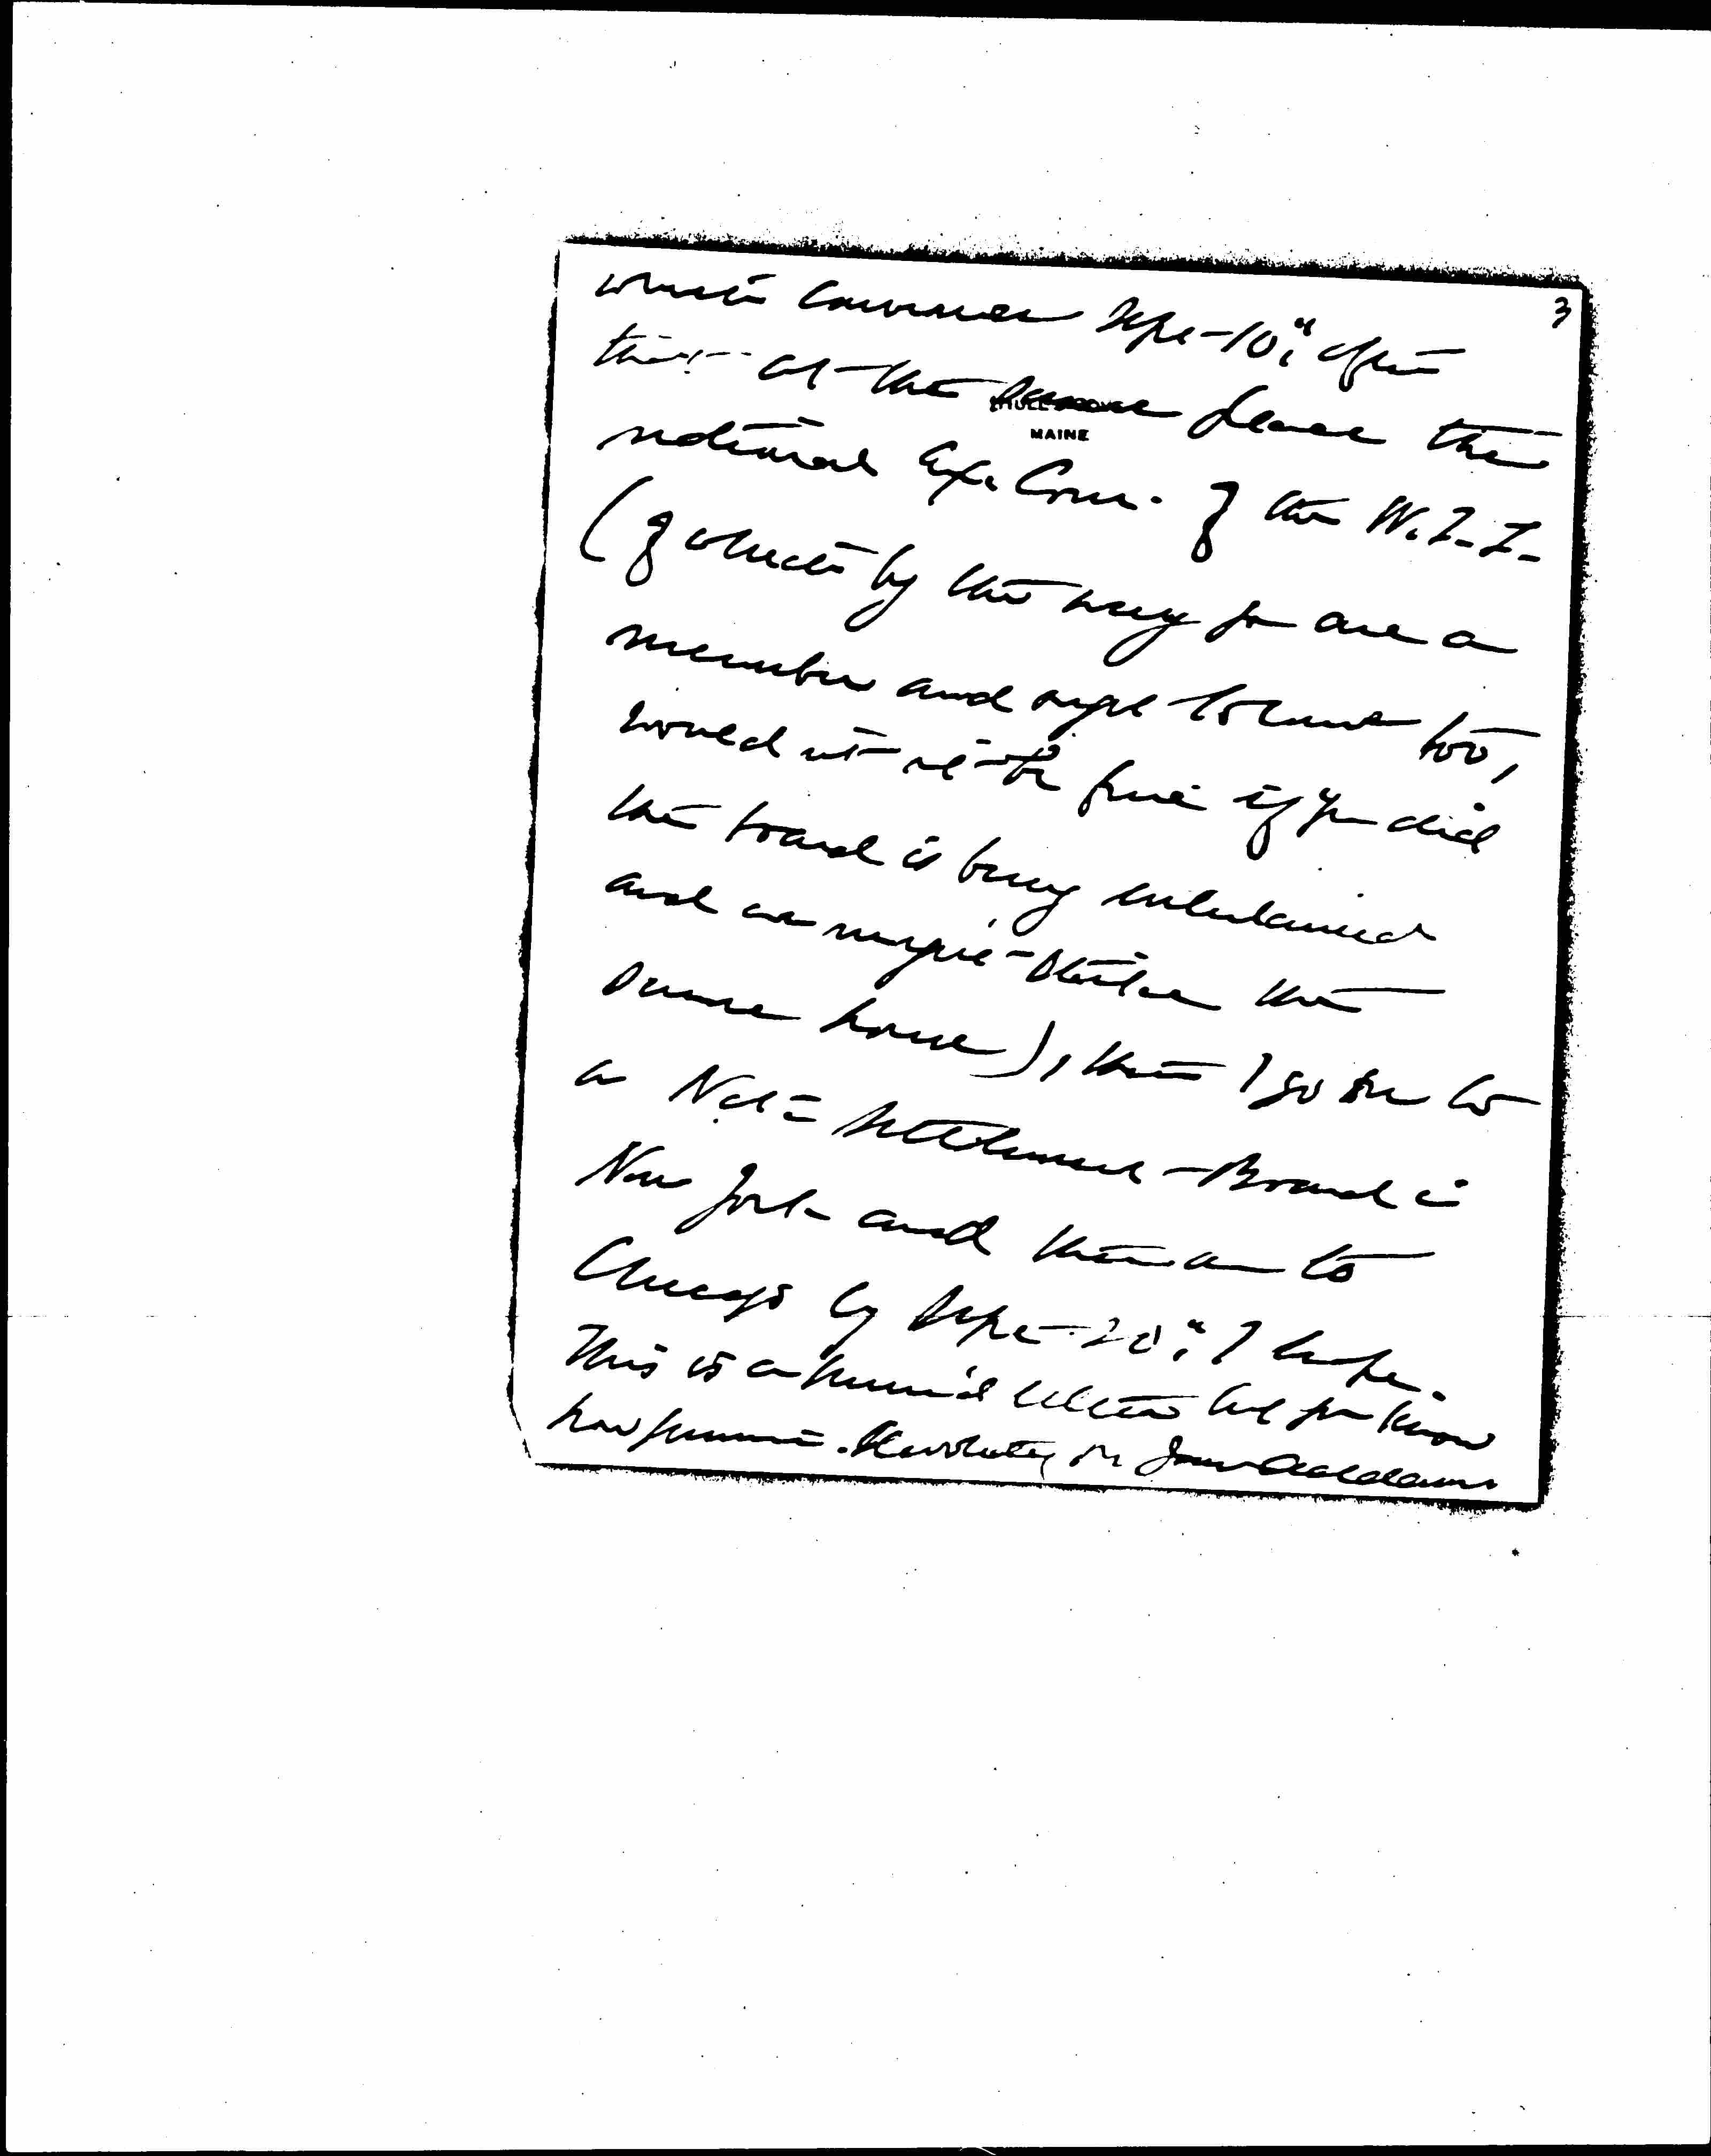 3
which convenes Sept 10" after
that at the same place the
HULL'S COVE
MAINE
national Ex. Com. of the W.I.L.
(of which by the way you are a
member and ought to come too,
would it not be fine if you did
the board is being entertained
and we might take the
same house), then I go on to
a Nat'l Settlement Board in
New York and then on to
Chicago by Sept 20", I hope.
This is a hurried letter but you know
how summer is. Devotedly yrs Jane Addams